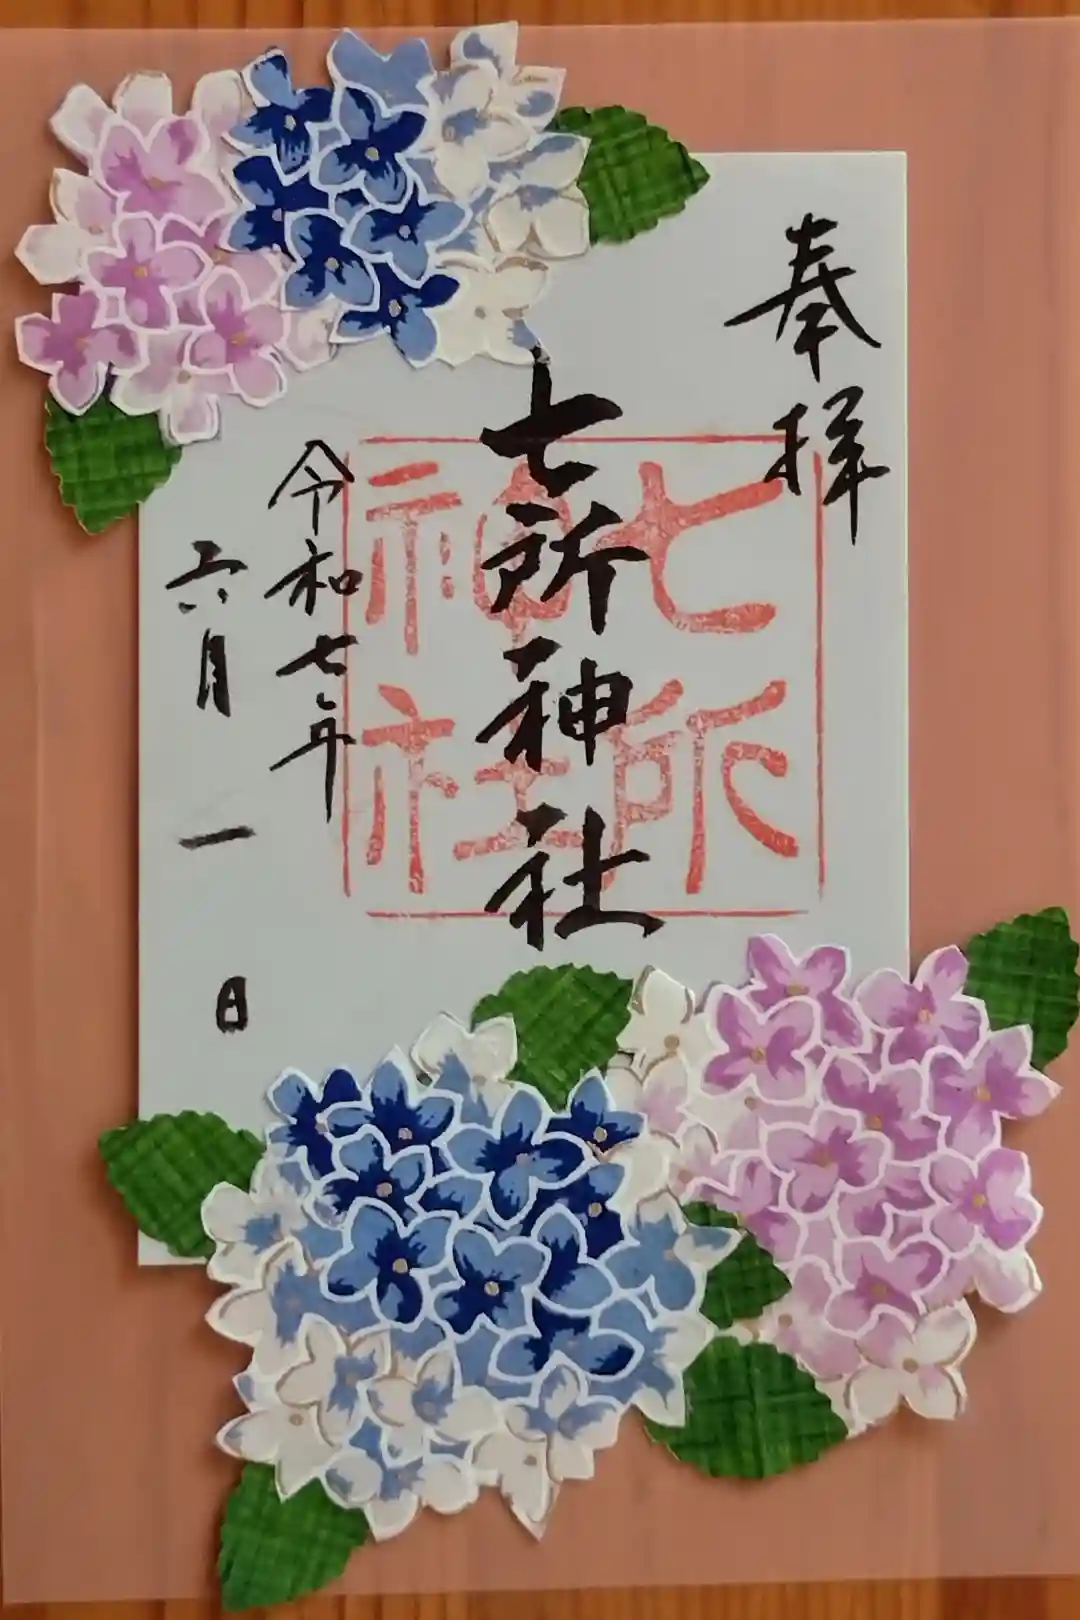 奉拝
七所神社
七所神社
令和七年
六月一日